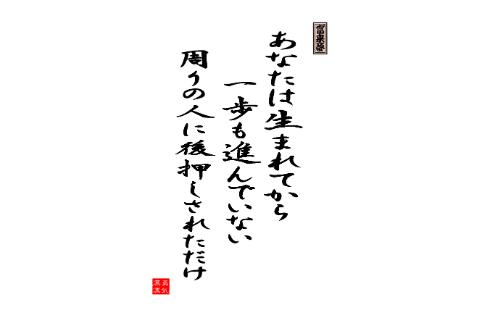 あなたは生まれてから
一歩も進んでいない
周りの人に後押しされただけ